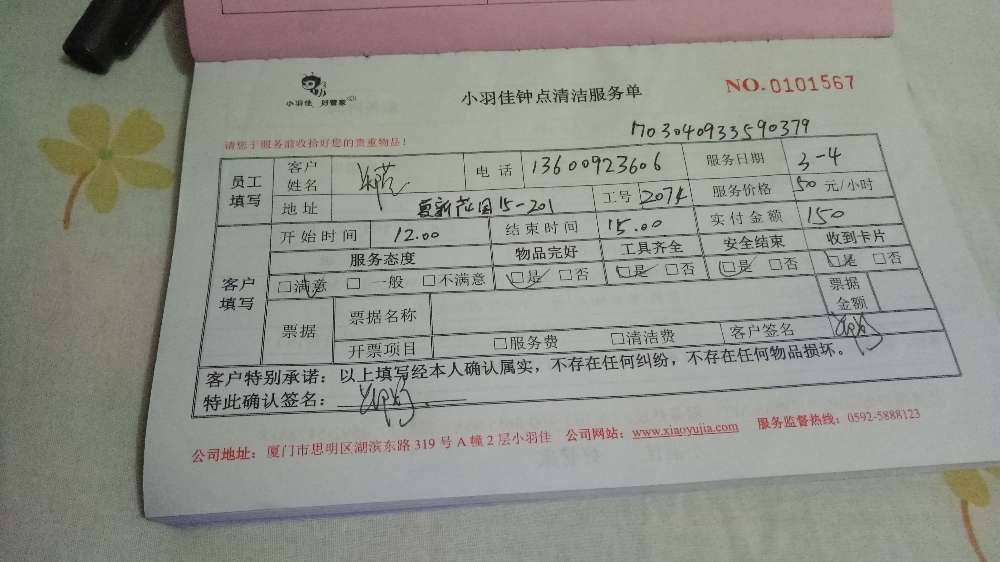 小羽佳 好管家
小羽佳钟点清洁服务单
NO.0101567
请您于服务前收拾好您的贵重物品！
1703040933590379
员工填写 客户姓名 电话 13600923606 服务日期 3-4
地址 15-201 工号 2074 服务价格 50 元/小时
客户填写 开始时间 12.00 结束时间 15.00 实付金额 150
服务态度 物品完好 工具齐全 安全结束 收到卡片
□满意 □一般 □不满意 □是 □否 □是 □否 □是 □否 □是 □否
票据 票据名称 票据金额
开票项目 □服务费 □清洁费 客户签名
客户特别承诺：以上填写经本人确认属实，不存在任何纠纷，不存在任何物品损坏。
特此确认签名：
公司地址：厦门市思明区湖滨东路 319 号 A 幢 2 层小羽佳 公司网站：www.xiaoyujia.com 服务监督热线：0592-5888123